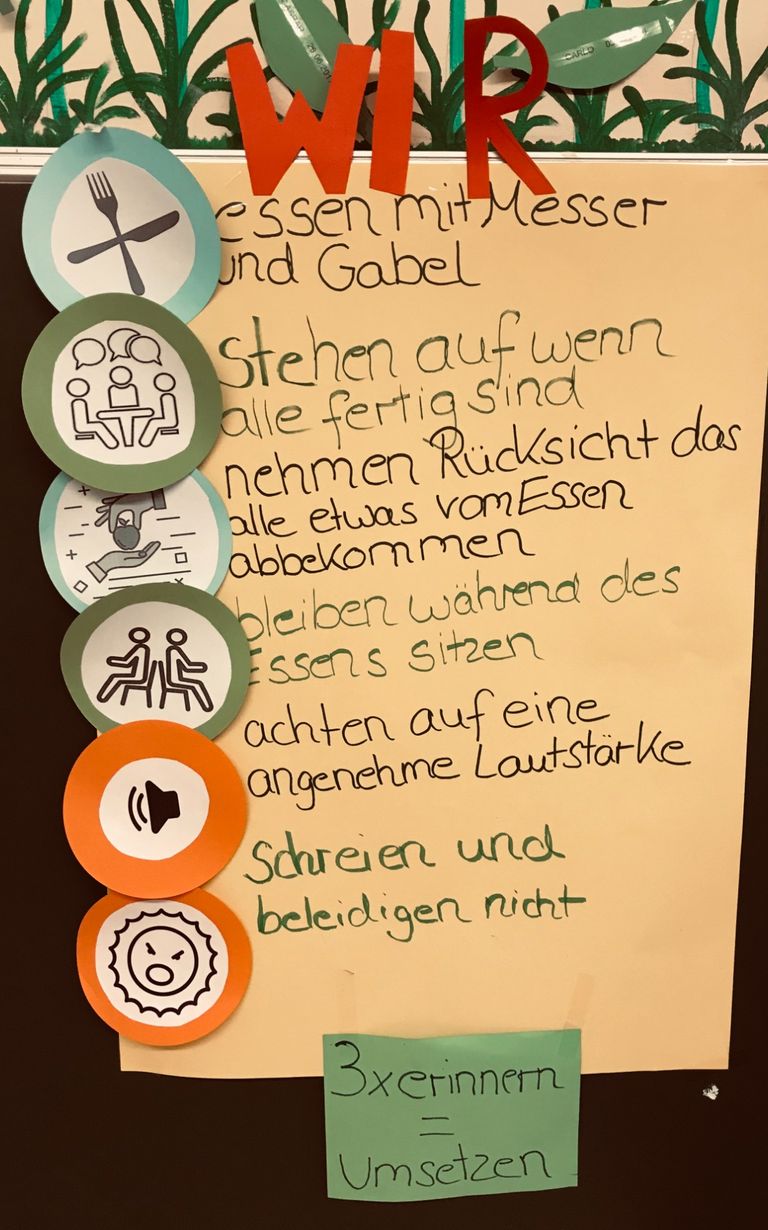 WIR
essen mit Messer
und Gabel
Stehen auf wenn
alle fertig sind
nehmen Rücksicht das
alle etwas vom Essen
abbekommen
bleiben während des
Essens sitzen
achten auf eine
angenehme Lautstärke
Schreien und
beleidigen nicht
3x erinnern
=
Umsetzen